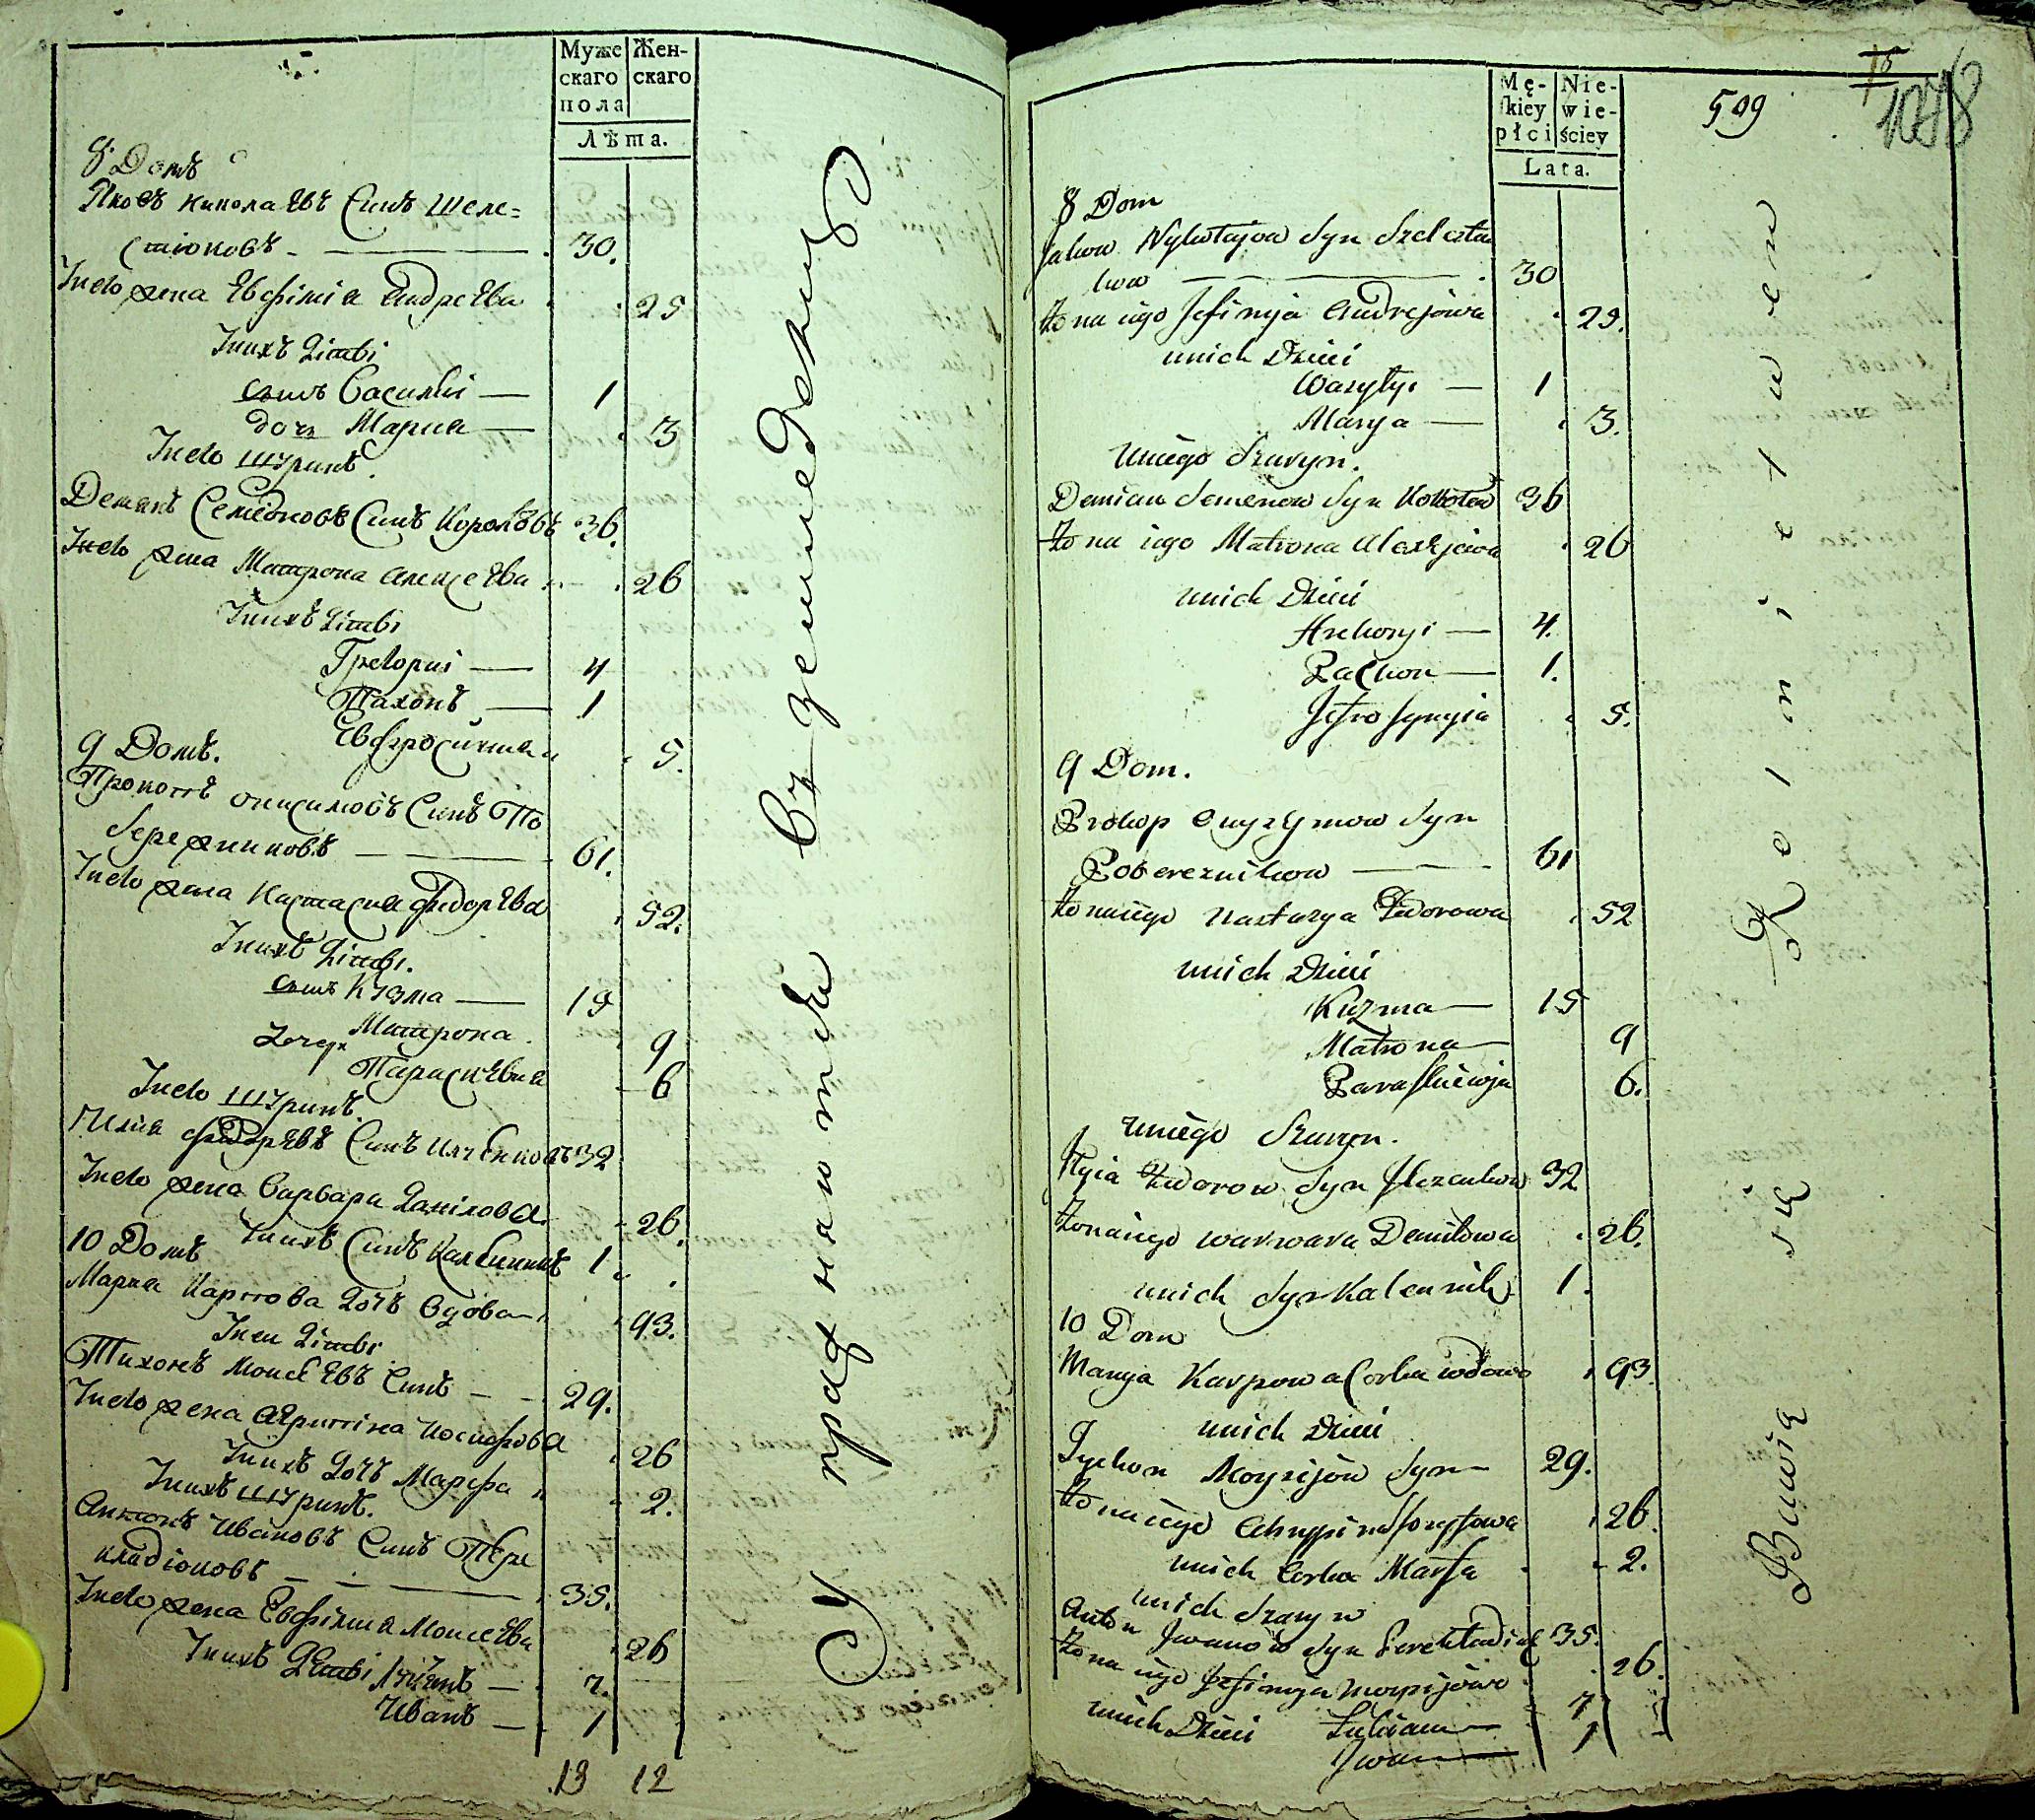 Муже
скаго
пола
Жен-
скаго
Лѣта.
8 Домъ
Яковъ Николаевъ Синъ Шеле=
стюковъ — 30.
Інего жена Евфиміа Андреева 25
Інихъ діти
синъ Василій — 1
дочь Мариа — 3
Інего Шуринъ.
Демянъ Семеоновъ Синъ Королювъ 36.
Інего жена Матрона Алексеева 26
Інихъ діти
Грегорий — 4
Пахонъ — 1
Евфросиниа 5.
9 Домъ.
Прокопъ Онисимовъ Синъ По
бережниковъ — 61.
Інего жена Настасиа Фидорева 52.
Інихъ діти.
синъ Кузма — 15
дочери Матрона 9
Параскевиа 6
Інего Шуринъ.
Илиа Фидоревъ Синъ Илченковъ 32
Інего жена Варвара Данілова 26.
Інихъ Синъ Каленникъ 1
10 Домъ
Мариа Карпова дочъ Вдова 93.
Інеи діти
Тихонъ Моисеевъ Синъ — 29.
Інего жена Агрипина Иосифова 26
Інихъ дочъ Марфа 2.
Інихъ Шуринъ.
Антонъ Ивановъ Синъ Пере
кладіоновъ — 35.
Інего жена Евфимиа Моисеева 26
Інихъ дѣти Лукіанъ — 7.
Иванъ — 1
13 12
Упражняютъся въ земледелиу
Mę-
skiey
płci
Nie-
wie-
ściey
Lata.
509
15
1078
8 Dom
Jakow Nykołajow Syn Szelestu
kow — 30
Żona iego Jefimja Andrejowa 25.
unich Dzieci
Wasyłyi — 1
Marya — 3.
Uniego Szuryn.
Demian Semenow Syn Korolow 36
Żona iego Matrona Alexiejewa 26
unich Dzieci
Hrehoryi — 4.
Pachon — 1.
Jefrosynyia 5.
9 Dom.
Prokop Onyzymow Syn
Pobereznikow — 61
Żona iego Nastazya Fedorowa 52
unich Dzieci
Kuzma — 15
Matrona — 9
Paraskiewja 6.
Uniego Szuryn.
Ilyia Fedorow Syn Ilczenkow 32
Żona iego Warwara Daniłowa 26.
unich Syn Kalennik 1.
10 Dom
Marya Karpowa Corka wdowa 93.
unich Dzieci
Tychon Moysijow Syn — 29.
Żona iego Ahrypina Josyfowa 26.
unich Corka Marfa 2.
unich Szuryn
Anton Iwanow Syn Perekładiuk 35.
Żona iego Jefimya Moysijowa 26.
unich Dzieci Łukiian — 7
Iwan — 1
Bawią się Rolnictwem